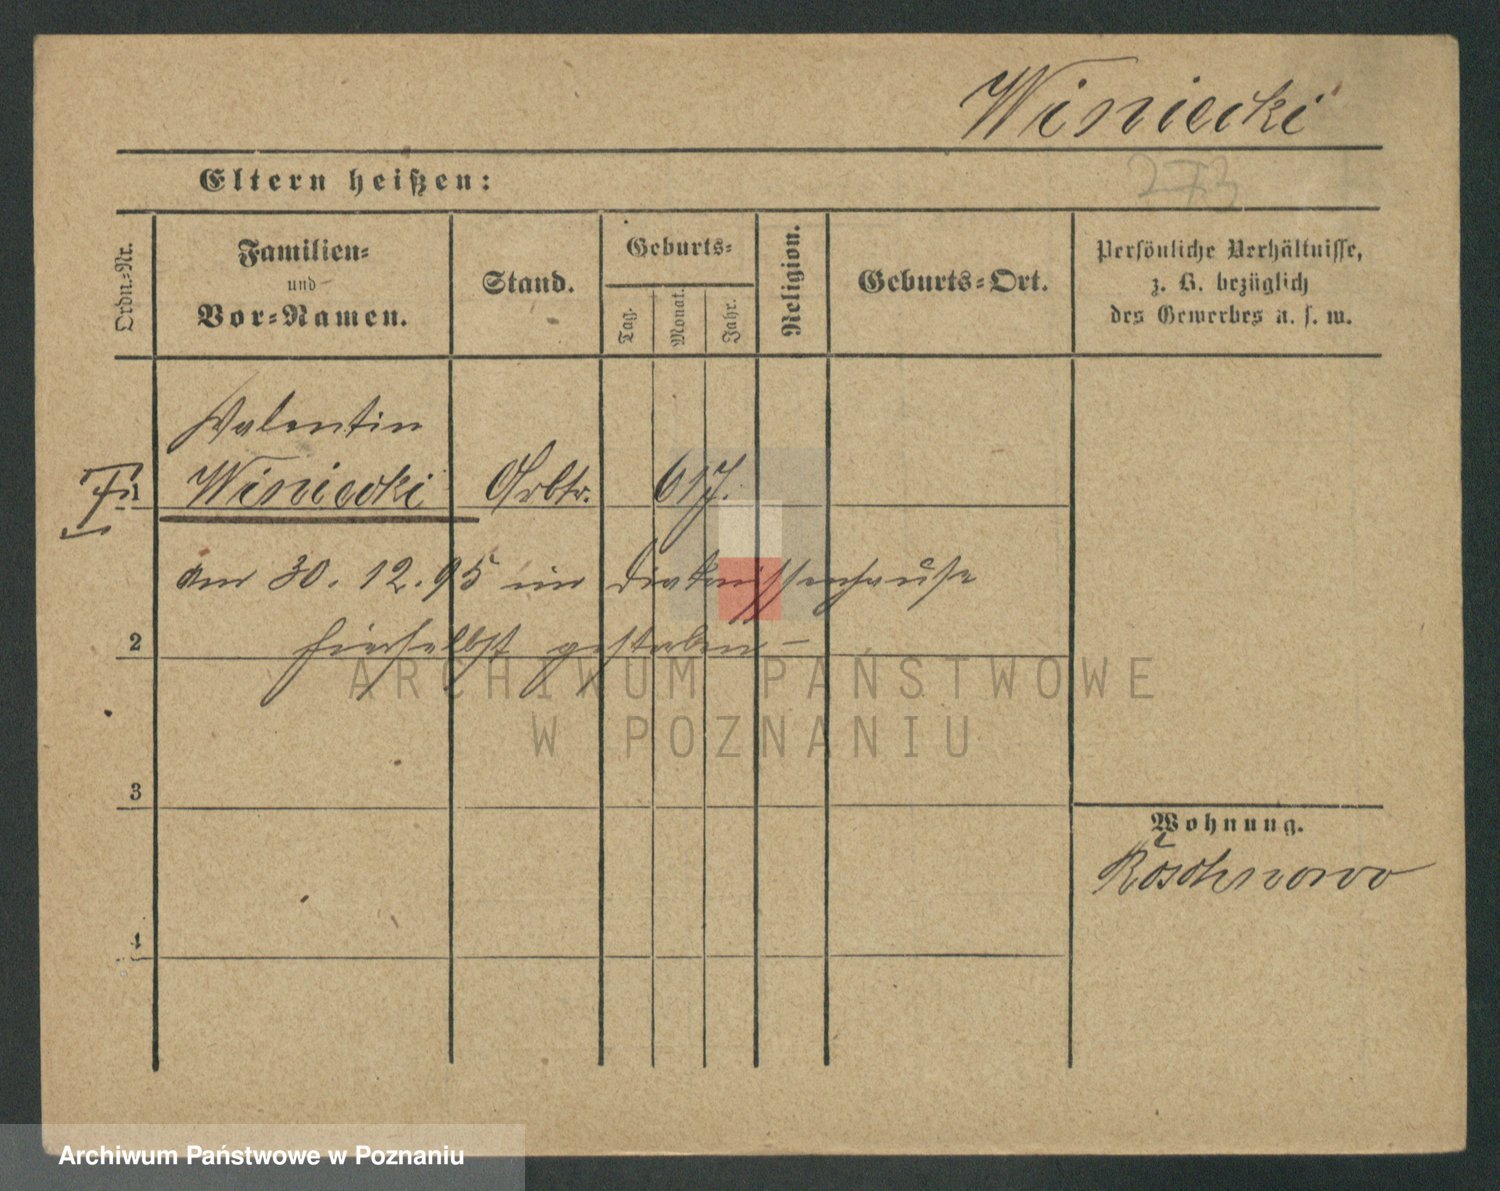 Winiecki
273
Eltern heißen:
Ordn.-Nr.
Familien-
und
Vor-Namen.
Stand.
Geburts-
Tag.
Monat.
Jahr.
Religion.
Geburts-Ort.
Persönliche Verhältnisse,
z. B. bezüglich
des Gewerbes u. s. w.
Valentin
1 Winiecki Arbtr. 61 J.
am 30. 12. 95 im Diakonissenhause
2 hierselbst gestorben –
ARCHIWUM PAŃSTWOWE
W POZNANIU
3
Wohnung.
Roschnowo
4
Archiwum Państwowe w Poznaniu